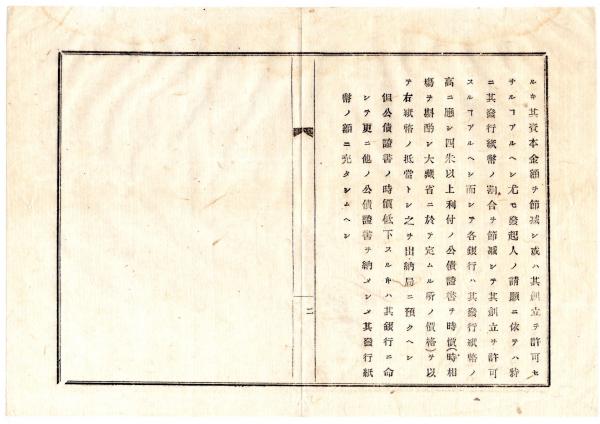 ルキ其資本金額ヲ節減シ或ハ其創立ヲ許可セ
サルヿアルヘシ尤モ發起人ノ請願ニ依テハ特
ニ其發行紙幣ノ割合ヲ節減シテ其創立ヲ許可
スルヿアルヘシ而シテ各銀行ハ其發行紙幣ノ
高ニ應シ四朱以上利付ノ公債證書ヲ時價(時相
場ヲ斟酌シ大藏省ニ於テ定ムル所ノ價格)ヲ以
テ右紙幣ノ抵當トシ之ヲ出納局ニ預クヘシ
但公債證書ノ時價低下スルキハ其銀行ニ命
シテ更ニ他ノ公債證書ヲ納メシメ其發行紙
幣ノ額ニ充タシムヘシ
二